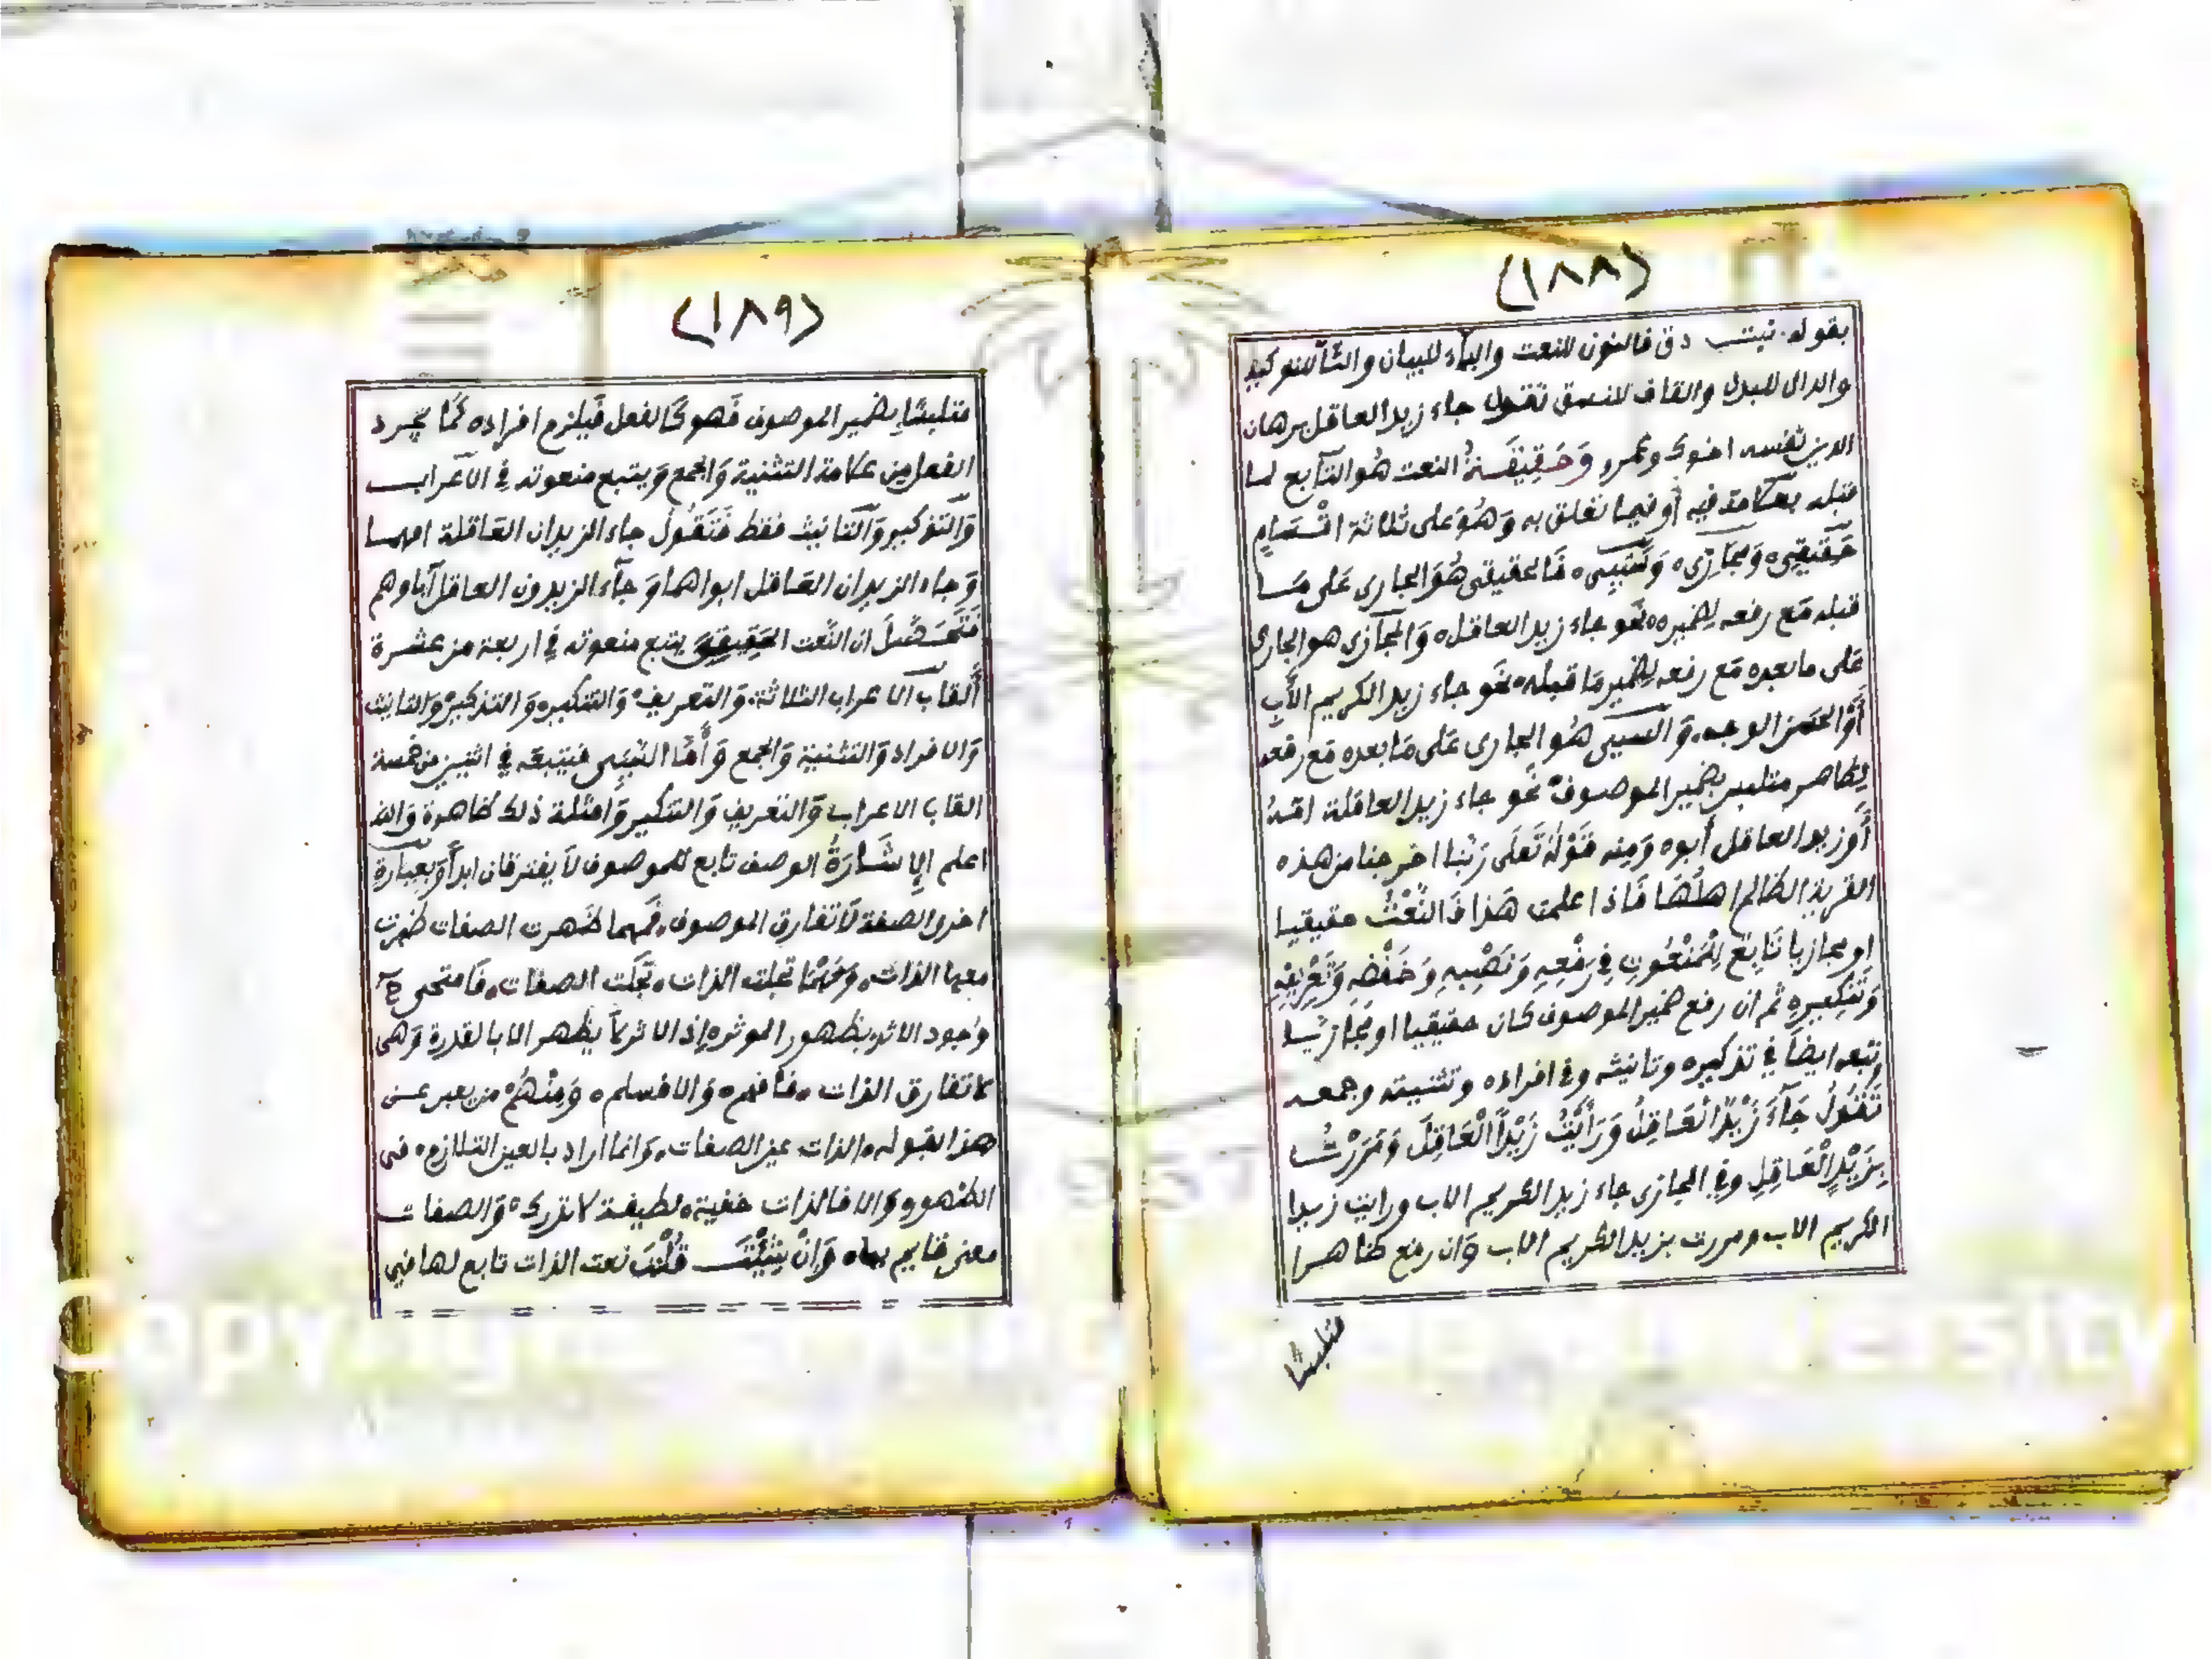 (١٨٨)
بقوله نبتب دق فالنون للنعت والباء للبيان والتآ للتوكيد
والدال للبدل والقاف للنسق تقول جاء زيد العاقل برهان
الدين نفسه اخوك وعمرو وَحَقِيقَةُ النعت هُو التآبع لما
قبله بعلامة فيه أو فيما تعلق به وَهُوَ على ثلاثة اقْسَامٍ
حَقيقِى وَمجَازِى وَسَبَبِى فَالحقيقى هُوَ الجارى عَلى مَا
قبله مَع رفعه لضميره نَحو جاء زيد العاقل وَالمجآزى هو الجارى
عَلى ما بعده مَع رفعه لضمير مَا قبله نحَو جاء زيد الكريم الأَبِ
أَوْ الحسَن الوجه وَالسببى هُو الجارى عَلى مَا بعده مَع رفعه
لظاهر متلبس بضمير الموصوف نَحو جاء زيد العاقلة امّهُ
أَوزيد العاقل أبوه وَمِنه قَوْلهُ تَعَلَى رَبّنا اخرجنا من هذه
القرية الظالم اهلُهَا فَاذا علمت هَذا فَالنَّعْتُ حقيقيا
او مجازيا تَابِعٌ لِلْمَنْعُوتِ فِي رَفْعِهِ وَنَصْبِهِ وَخَفْضِهِ وَتَعْرِيفِهِ
وَتَنْكِيرِهِ ثم ان رفع ضمير الموصوف كان حقيقيا او مجَازيّا
وتبعه ايضًا في تذكيره وتانيثه وفي افراده وتثنيته وجمعه
تَقُولُ جَآءَ زَيْدٌ الْعَاقِلُ وَرَأَيْتُ زَيْداً الْعَاقِلَ وَمَرَرْتُ
بِزَيْدٍ الْعَاقِلِ وفي المجازى جاء زيد الكريم الاب ورايت زيدا
الكريم الاب ومررت بزيد الكريم الاب وَان رفع ظاهرا
متلبسًا
(١٨٩)
متلبسًا بضمير الموصوف فَهو كَالفعل فَيلزم افراده كَمَا يجرد
الفعل من علامة التثنية وَالجمع وَيتبع منعوته في الاعراب
وَالتذكير وَالتانيث فقط فَتَقُولُ جاء الزيدان العَاقلة امهما
وَجاء الزيدان العَاقل ابواهما وَجآء الزيدون العاقل آباوهم
فَتَحَصَّلَ ان النعت الحَقِيقِىَ يتبع منعوته في اربعة من عشرة
أَلقاب الاعراب الثلاثة وَالتعريف وَالتنكير وَالتذكير وَالتانيث
وَالافراد وَالتثنية وَالجمع وَأَمَّا السَّبَبِى فيتبعه في اثنين من خمسة
القاب الاعراب وَالتعريف وَالتنكير وَامثلة ذلك ظاهرة وَالله
اعلم الِاشَارَةُ الوصف تابع للموصوف لَا يفترقان ابداً وَبعبارة
اخرى الصفة لَا تفارق الموصوف فَمهما ظَهرت الصفات ظهرت
معها الذات وَمَهْمَا تجلت الذات تجلت الصفات فَامتحى
وُجود الاثر بظهور الموثر إذ الاثر لَا يظهر الا بالقدرة وَهى
لا تفارق الذات فَافهم وَالافسلم وَمِنْهُمْ من يعبر عن
هذا بقوله الذات عين الصفات وَانما اراد بالعين التلازم فى
الظهور وَالا فالذات خفية لطيفة لا تدرك وَالصفات
معنى قايم بها وَانْ شِئْتَ قُلْتَ نعت الذات تابع لها في